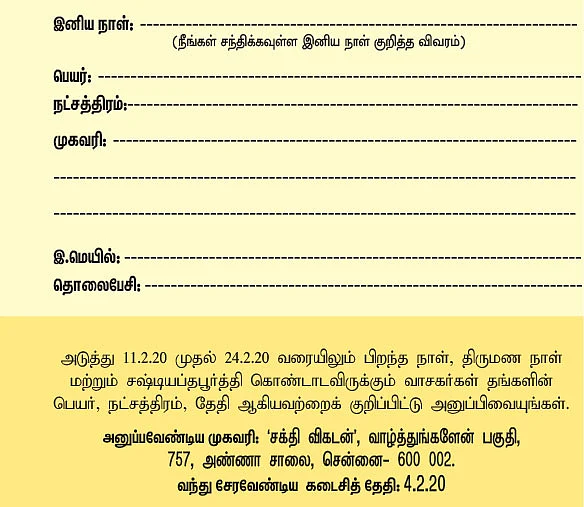 இனிய நாள்: --------------------------------------------------------
(நீங்கள் சந்திக்கவுள்ள இனிய நாள் குறித்த விவரம்)
பெயர்: --------------------------------------------------------------
நட்சத்திரம்:----------------------------------------------------------
முகவரி: ------------------------------------------------------------
--------------------------------------------------------------------
--------------------------------------------------------------------
இ.மெயில்: -----------------------------------------------------------
தொலைபேசி: --------------------------------------------------------
அடுத்து 11.2.20 முதல் 24.2.20 வரையிலும் பிறந்த நாள், திருமண நாள்
மற்றும் சஷ்டியப்தபூர்த்தி கொண்டாடவிருக்கும் வாசகர்கள் தங்களின்
பெயர், நட்சத்திரம், தேதி ஆகியவற்றைக் குறிப்பிட்டு அனுப்பிவையுங்கள்.
அனுப்பவேண்டிய முகவரி: ‘சக்தி விகடன்’, வாழ்த்துங்களேன் பகுதி,
757, அண்ணா சாலை, சென்னை- 600 002.
வந்து சேரவேண்டிய கடைசித் தேதி: 4.2.20